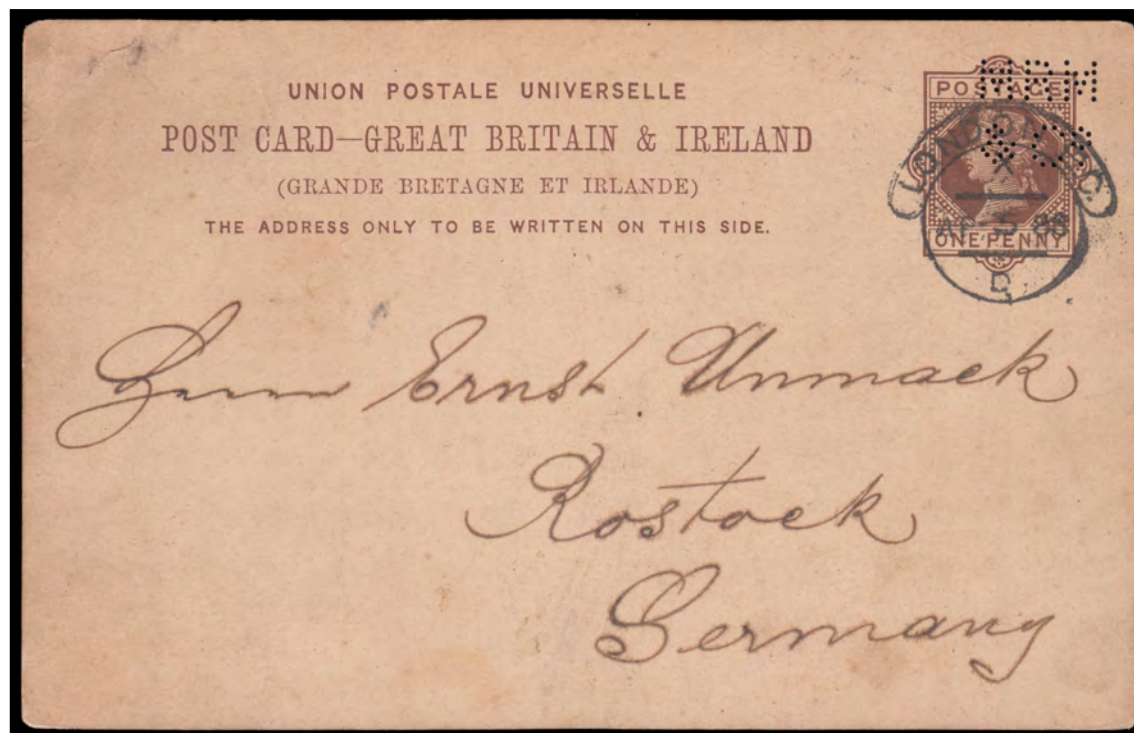 UNION POSTALE UNIVERSELLE
POST CARD—GREAT BRITAIN & IRELAND
(GRANDE BRETAGNE ET IRLANDE)
THE ADDRESS ONLY TO BE WRITTEN ON THIS SIDE.
POSTAGE
ONE PENNY
LONDON
X
AP 5 86
D
Herrn Ernst Unmack
Rostock
Germany